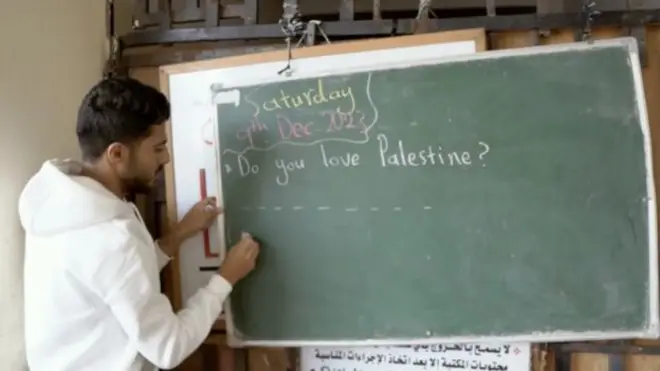 Saturday
9th Dec 2023
* Do you love Palestine?
لا يسمح بالخروج بأي
محتويات المكتبة إلا بعد اتخاذ الإجراءات المناسبة